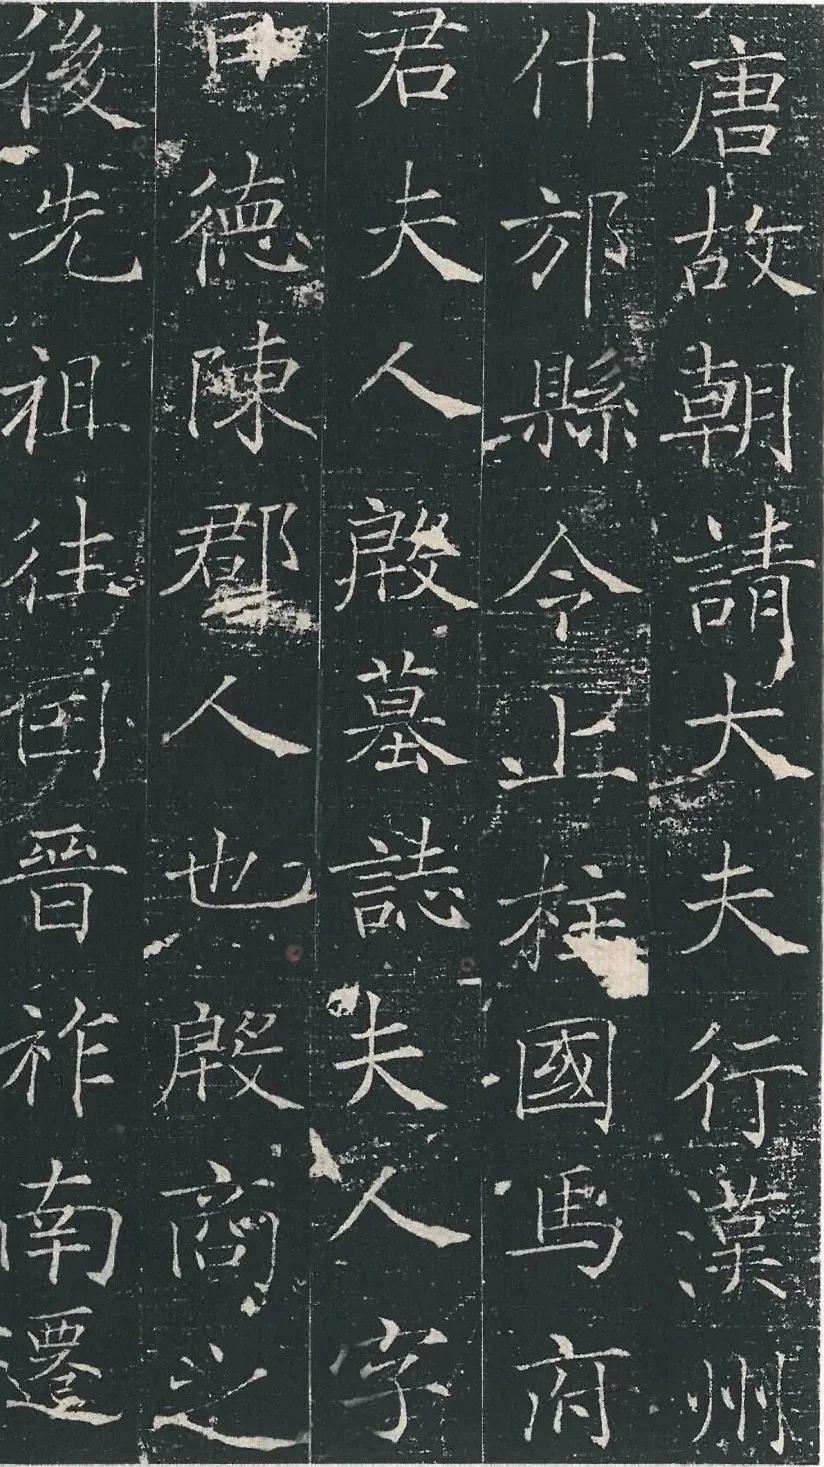 唐故朝請大夫行漢州
什邡縣令上柱國馬府
君夫人殷墓誌夫人字
曰德陳郡人也殷商之
後先祖往因晉祚南遷